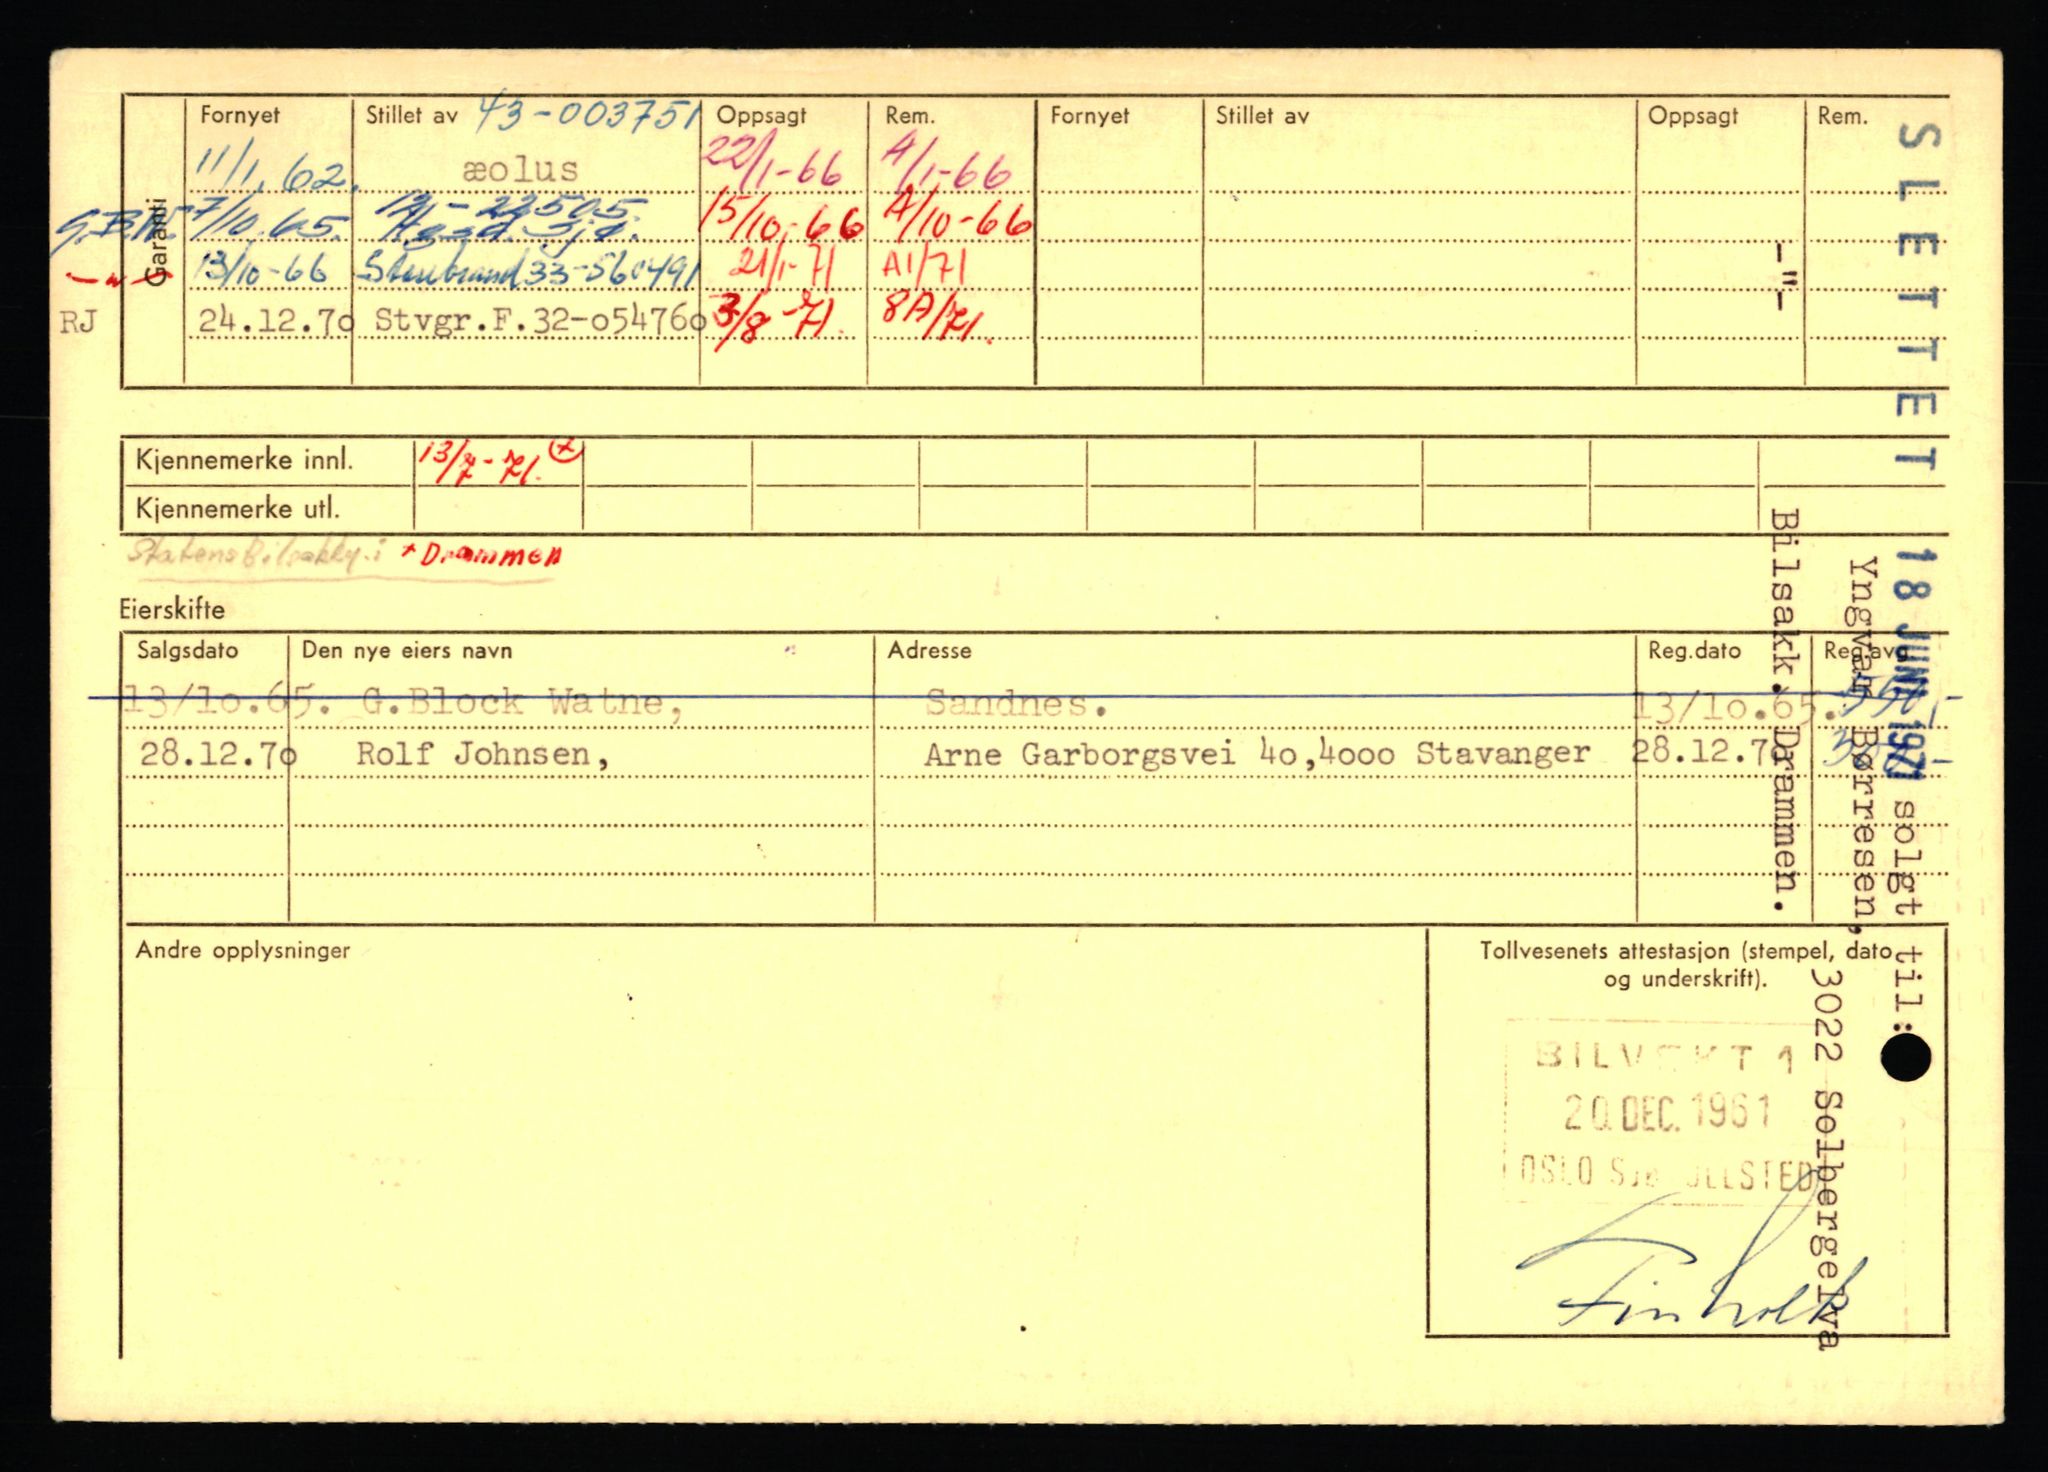 Garanti
Fornyet Stillet av 43-003751 Oppsagt Rem. Fornyet Stillet av Oppsagt Rem.
11/1. 62. æolus 22/1-66 A/1-66
G.B.W. 7/10.65. 15/10-66 A/10-66
-"- 13/10-66 Storebrand 33-560491 21/1-71 A1/71
RJ 24.12.7o Stvgr.F.32-o5476o 3/8-71. 8A/71.
Kjennemerke innl. 13/7-71. +
Kjennemerke utl.
Statens Bilsakky. i + Drammen
Eierskifte
Salgsdato Den nye eiers navn Adresse Reg.dato Reg.avg
13/1o.65. G.Block Watne, Sandnes. 13/1o.65.
28.12.7o Rolf Johnsen, Arne Garborgsvei 4o,4ooo Stavanger 28.12.7o
Andre opplysninger
Tollvesenets attestasjon (stempel, dato
og underskrift).
20. DEC. 1961
SLETTET 18 JUNI 1971 solgt til:
Yngvar Børresen,
3022 Solbergelva
-"- Bilsakk. Drammen.